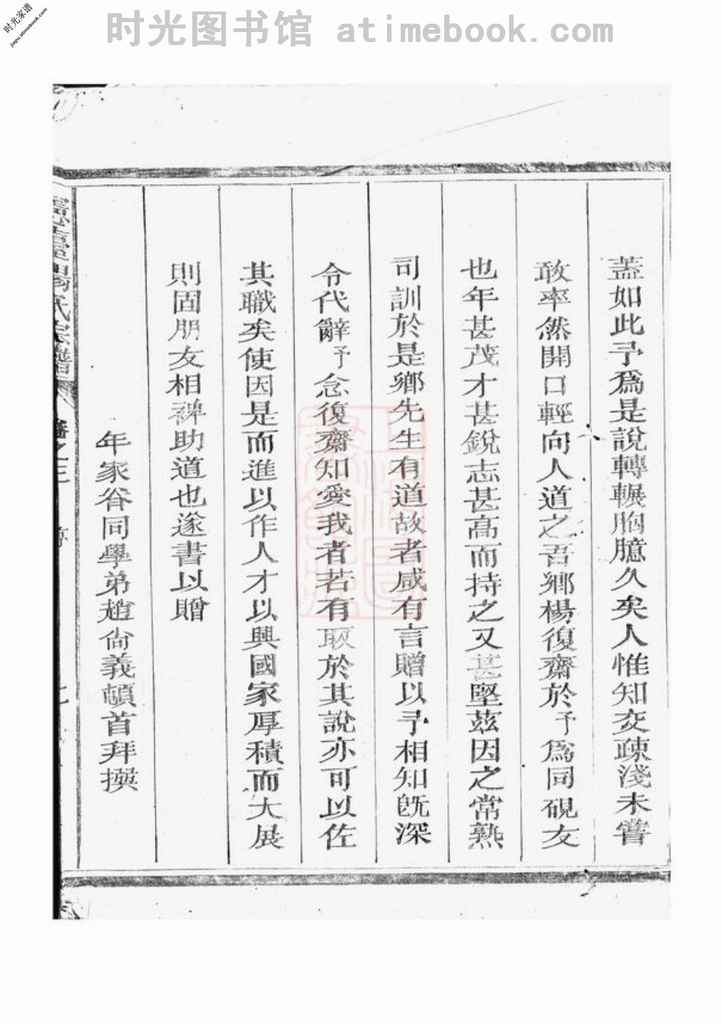 时光图书馆 atimebook.com
时光家谱
盖如此予爲是說轉輾胸臆久矣人惟知交疎淺未甞
敢率然開口輕向人道之吾鄉楊復齋於予爲同硯友
也年甚茂才甚銳志甚高而持之又甚堅茲因之常熟
司訓於是鄉先生有道故者咸有言贈以予相知旣深
令代辭予念復齋知愛我者若有取於其說亦可以佐
其職矣使因是而進以作人才以興國家厚積而大展
則固朋友相裨助道也遂書以贈
年家眷同學弟趙尙義頓首拜撰
氏宗譜